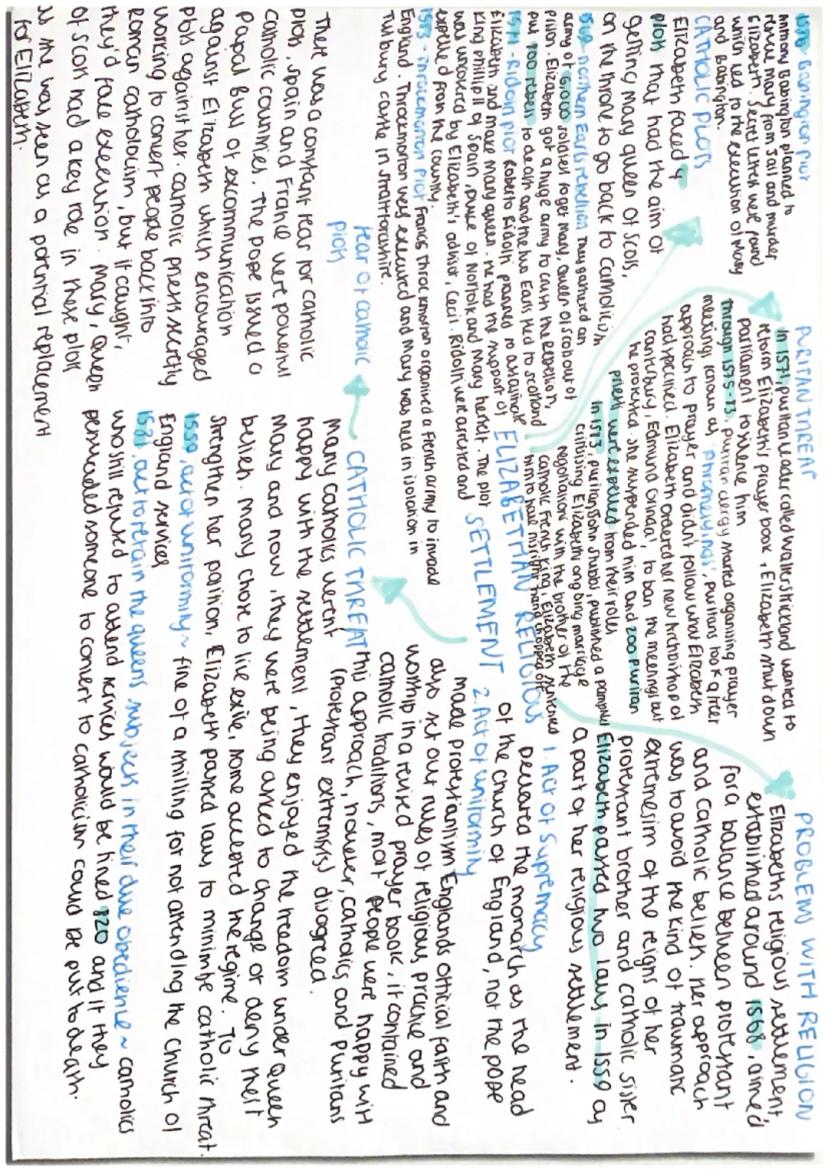 1586 Babington plot
Anthony Babington planned to
rescue Mary from jail and murder
Elizabeth. Secret letters were found
which led to the execution of Mary
and Babington.
CATHOLIC PLOTS
Elizabeth faced 4
plots that had the aim of
getting Mary queen of Scots,
on the throne to go back to catholicism
1569 northern Earls rebellion They gathered an
army of
soldiers to get Mary, Queen of Scots out of
prison. Elizabeth got a huge army to crush the rebellion,
put
rebels to death and the two Earls fled to scotland
1571 - Ridolfi plot Roberto Ridolfi planned to assassinate
Elizabeth and make Mary queen. he had the support of
King phillip II of Spain, Duke of Norfolk and Mary herself. The plot
was uncovered by Elizabeth's advisor, Cecil. Ridolfi were arrested and
expelled from the country.
1583 - Throckmorton Plot Francis Throckmorton organised a French army to invade
England. Throckmorton were executed and Mary was held in isolation in
Tutbury castle in Straffordshire.
PURITAN THREAT
In 1571, puritan leader called Walter Strickland wanted to
reform Elizabeth's prayer book, Elizabeth shut down
parliament to silence him
through 1575-83, puritan clergy started organising prayer
meetings known as
Puritans took a freer
approach to prayer and didn't follow what Elizabeth
had specified. Elizabeth ordered her new Archbishop of
Canterbury, Edmund Grindal, to ban the meetings but
he protested. She suspended him and 200 Puritan
priests were expelled from their roles
In 1573 puritan John Stubbs, published a pamphlet
critising Elizabeth's ongoing marriage
negotiations with the brother of the
catholic French king, Elizabeth sentenced
him to have his right hand chopped off.
PROBLEMS WITH RELIGION
Elizabeth's religious settlement,
established around 1568, aimed
for a balance between protestant
and Catholic beliefs. Her approach
was to avoid the kind of traumatic
extremesim of the reigns of her
protestant brother and catholic sister
Elizabeth passed two laws in 1559 as
a part of her religious settlement.
ELIZABETHAN RELIGIOUS
SETTLEMENT
1. Act of supremacy
Declared the monarch as the head
of the church of England, not the pope
2. Act of uniformity
made protestantism Englands official faith and
also set out rules of religious practice and
worship in a revised prayer book, it contained
catholic traditions, most people were happy with
this approach, however, catholics and Puritans
(protestant extremists) disagreed.
CATHOLIC THREAT
Many catholics weren't
happy with the settlement, they enjoyed the freedom under Queen
Mary and now, they were being asked to change or deny their
beliefs. Many chose to live exile, some accepted the regime. To
strengthen her position, Elizabeth passed laws to minimise catholic threat.
1559, act of uniformity ~ fine of a shilling for not attending the Church of
England services
1581, act to retain the queens subjects in their due obedience ~ catholics
who still refused to attend services would be fined £20 and if they
persuaded someone to convert to catholicism could be put to death.
fear of catholic
plots
There was a constant fear for catholic
plots, Spain and France were powerful
catholic countries. The pope issued a
Papal Bull of excommunication
against Elizabeth which encouraged
plots against her. catholic priests secretly
working to convert people back into
Roman catholocism, but if caught,
they'd face execution. Mary, Queen
of Scots had a key role in these plots
as she was seen as a potential replacement
for Elizabeth.